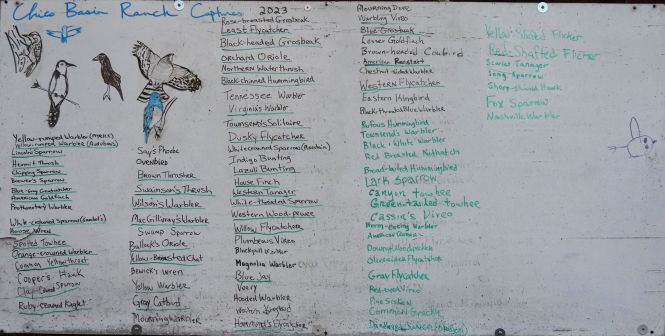 Chico Basin Ranch Captures 2023
Yellow-rumped Warbler (Myrtle)
Yellow-rumped Warbler (Audubons)
Lincolns Sparrow
Hermit Thrush
Chipping Sparrow
Brewer's Sparrow
Blue-Gray Gnatcatcher
American Goldfinch
Prothonotary Warbler
White-crowned Sparrow (Gambel's)
House Wren
Spotted Towhee
Orange-crowned Warbler
Common Yellowthroat
Cooper's Hawk
Clay-colored Sparrow
Ruby-crowned Kinglet
Say's Phoebe
Ovenbird
Brown Thrasher
Swainson's Thrush
Wilson's Warbler
MacGillivray's Warbler
Swamp Sparrow
Bullock's Oriole
Yellow-Breasted Chat
Bewick's Wren
Yellow Warbler
Gray Catbird
Mourning Warbler
Rose-breasted Grosbeak
Least Flycatcher
Black-headed Grosbeak
Orchard Oriole
Northern Waterthrush
Black-chinned Hummingbird
Tennessee Warbler
Virginia's Warbler
Townsend's Solitaire
Dusky Flycatcher
White crowned Sparrow
Indigo Bunting
Lazuli Bunting
House Finch
Western Tanager
White-throated Sparrow
Western Wood-pewee
Willow Flycatcher
Plumbeous Vireo
Blackpoll Warbler
Magnolia Warbler
Blue Jay
Veery
Hooded Warbler
Western Kingbird
Hammond's Flycatcher
Mourning Dove
Warbling Vireo
Blue Grosbeak
Lesser Goldfinch
Brown-headed Cowbird
American Redstart
Chestnut-sided Warbler
Western Flycatcher
Eastern Kingbird
Black-throated Blue Warbler
Rufous Hummingbird
Townsend's Warbler
Black + White Warbler
Red Breasted Nuthatch
Broad-tailed Hummingbird
Lark Sparrow
Canyon towhee
Green-tailed towhee
Cassin's Vireo
Worm-eating Warbler
American
Downy Woodpecker
Olive sided Flycatcher
Gray Flycatcher
Red-eyed Vireo
Pine Siskin
Common Grackle
Dark-eyed Junco
Yellow-Shafted Flicker
Red-Shafted Flicker
Scarlet Tanager
Song Sparrow
Sharp-shinned Hawk
Fox Sparrow
Nashville Warbler